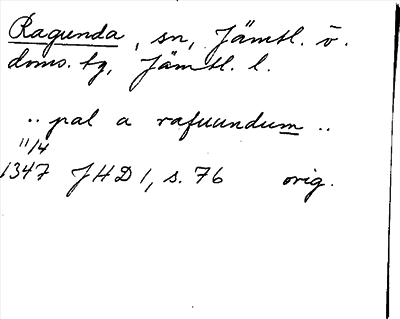 Ragunda, sn, Jämtl. ö.
doms. tg, Jämtl. l.
.. pal a rafuundum ..
11/4
1347 JHD 1, s. 76 orig.